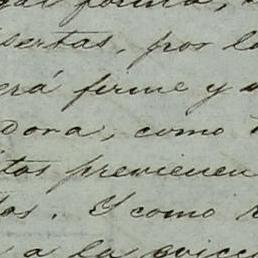 gal forma,
sertas, por l
erá firme y
dora, como
tos previenen
dos. Y como
a la evicc